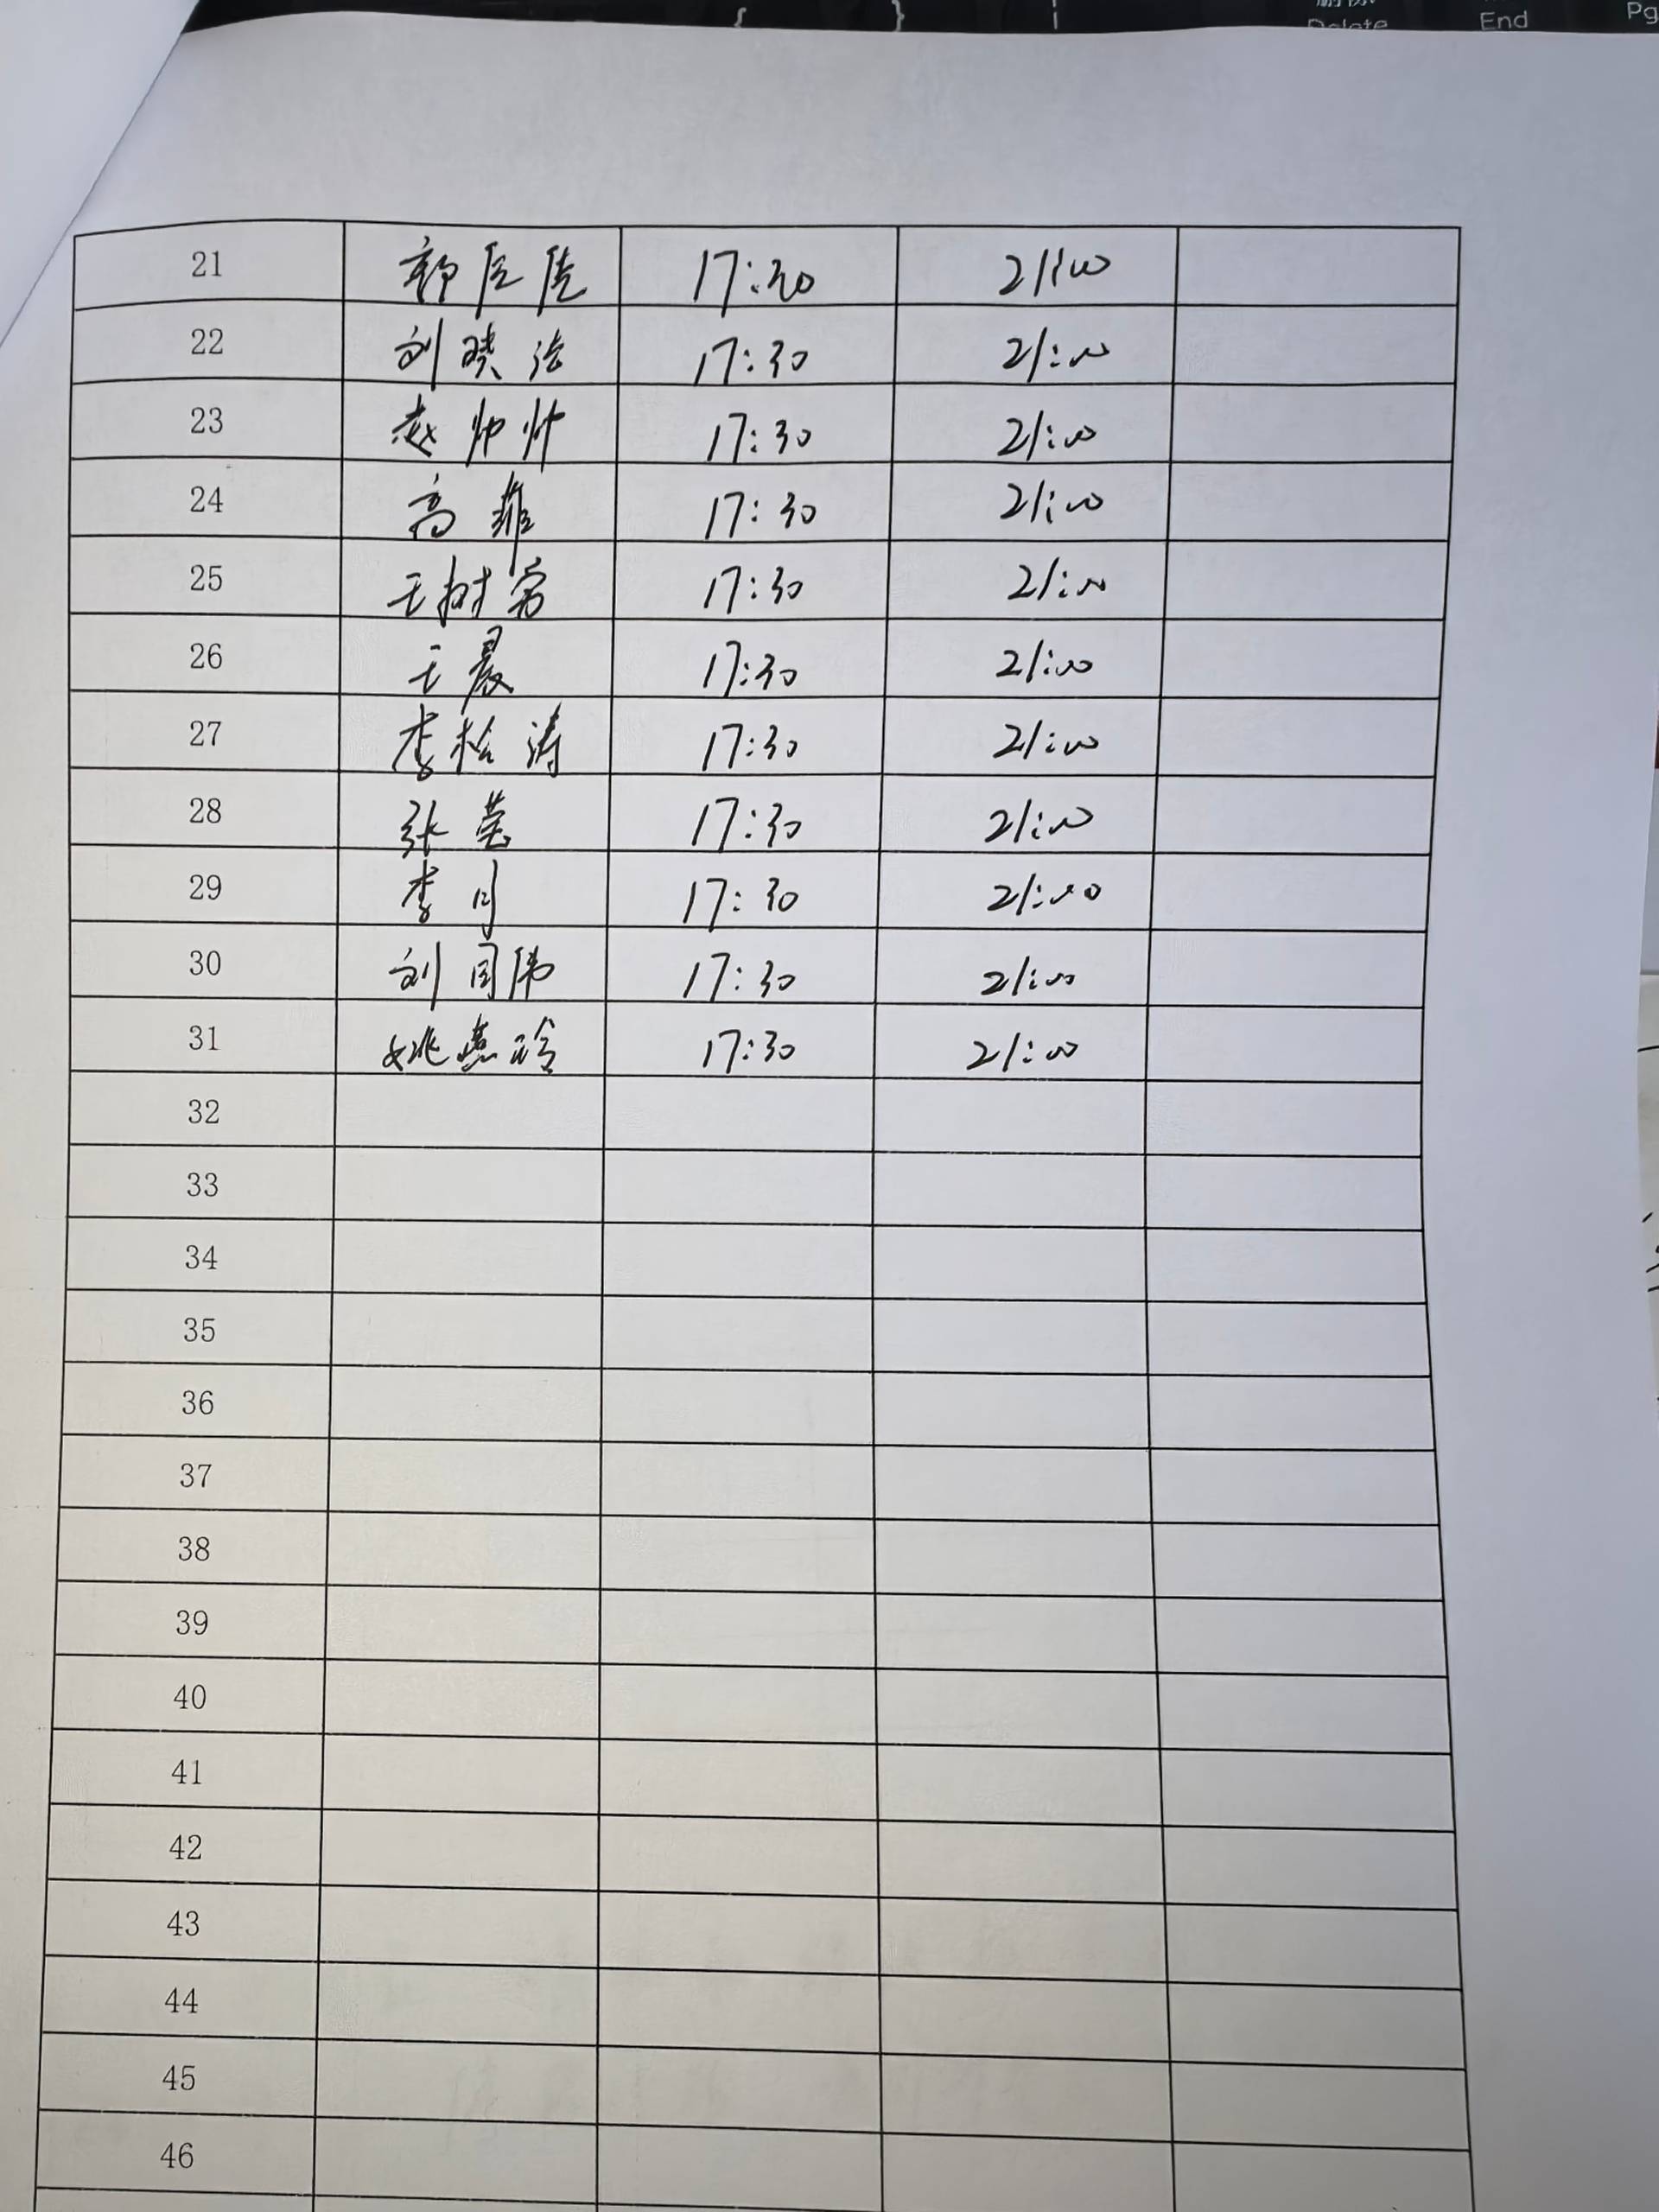 { } Delete End Pg
21 17:30 21:00
22 刘晓 17:30 21:00
23 赵帅帅 17:30 21:00
24 高 17:30 21:00
25 王树 17:30 21:00
26 王晨 17:30 21:00
27 李松涛 17:30 21:00
28 张莹 17:30 21:00
29 李 17:30 21:00
30 刘国伟 17:30 21:00
31 姚燕玲 17:30 21:00
32
33
34
35
36
37
38
39
40
41
42
43
44
45
46